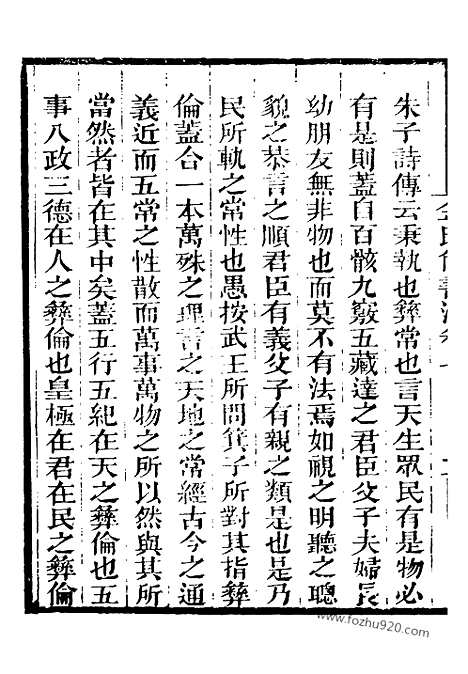 朱子詩傳云秉執也彝常也言天生眾民有是物必
有是則蓋自百骸九竅五藏達之君臣父子夫婦長
幼朋友無非物也而莫不有法焉如視之明聽之聰
貌之恭言之順君臣有義父子有親之類是也是乃
民所軌之常性也愚按武王所問箕子所對其指彝
倫蓋合一本萬殊之理言之天地之常經古今之通
義近而五常之性散而萬事萬物之所以然與其所
當然者皆在其中矣蓋五行五紀在天之彝倫也五
事八政三德在人之彝倫也皇極在君在民之彝倫
www.fozhu920.com